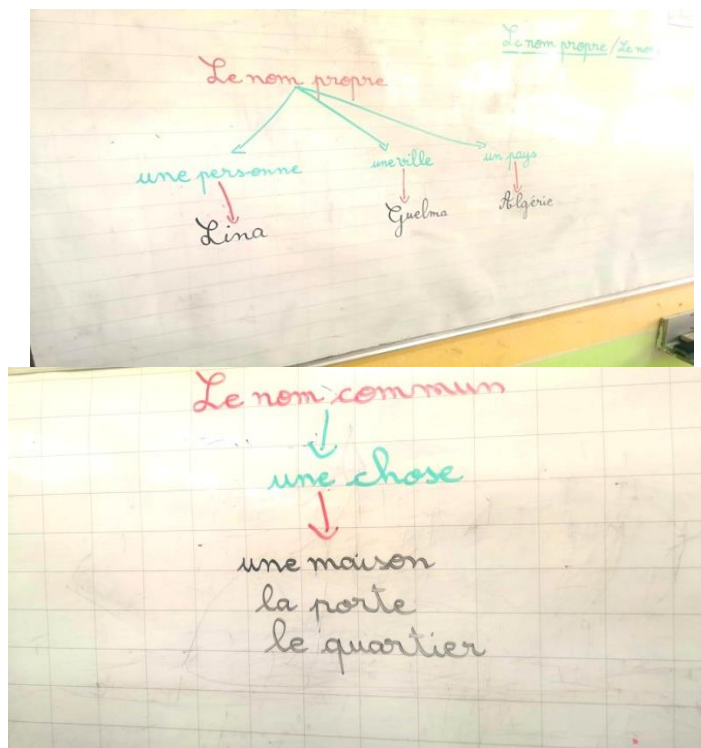 Le nom propre / Le nom
Le nom propre
une personne une ville un pays
Lina Guelma Algérie
Le nom commun
une chose
une maison
la porte
le quartier